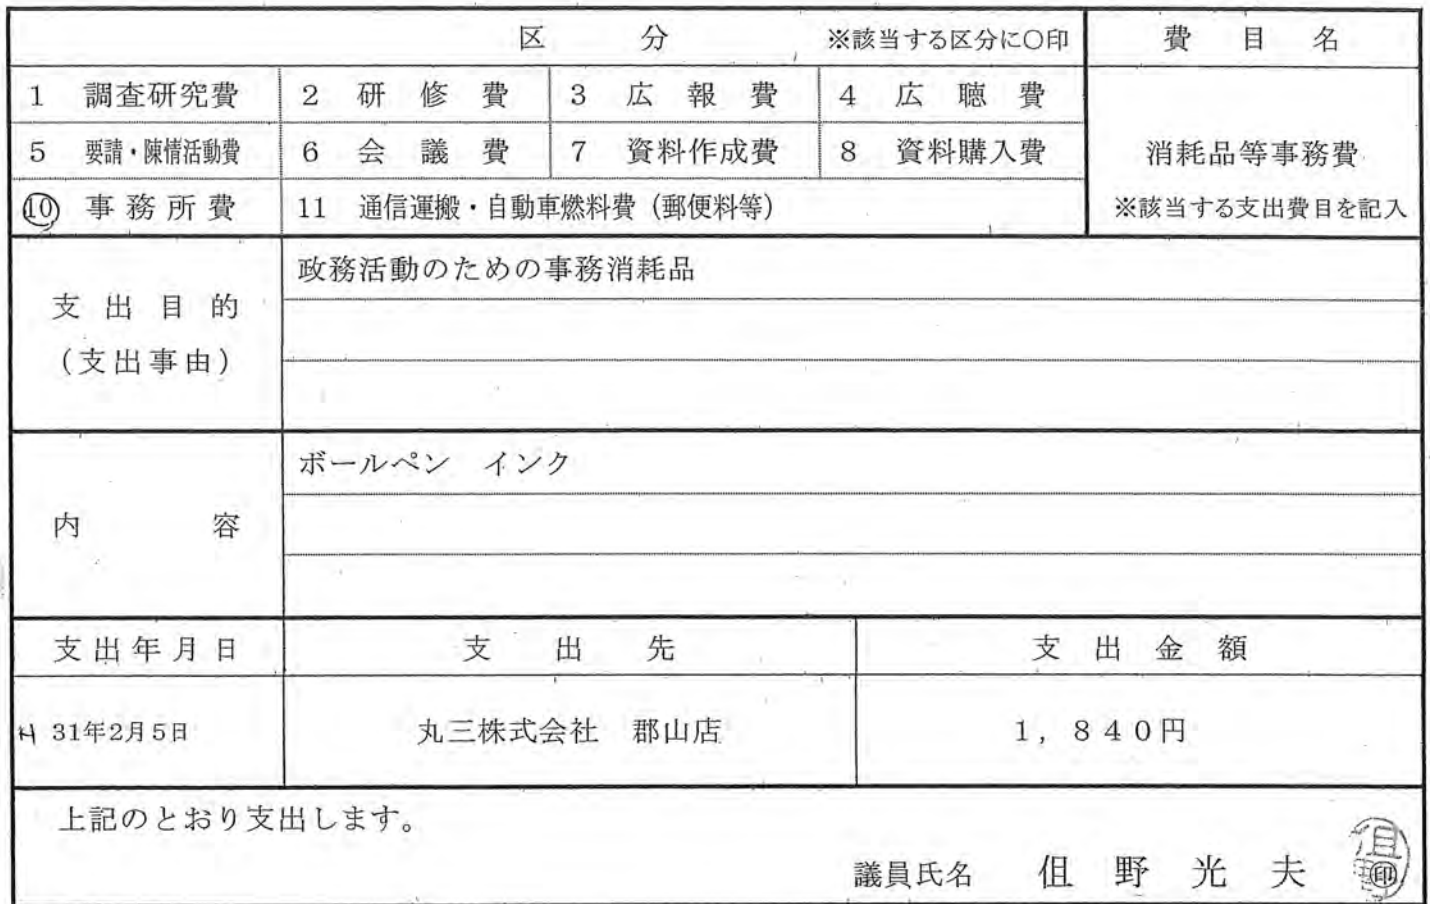 区分 ※該当する区分に○印 費目名
1 調査研究費 2 研修費 3 広報費 4 広聴費
5 要請・陳情活動費 6 会議費 7 資料作成費 8 資料購入費 消耗品等事務費
⑩ 事務所費 11 通信運搬・自動車燃料費（郵便料等） ※該当する支出費目を記入
支出目的
（支出事由）
政務活動のための事務消耗品
内容
ボールペン インク
支出年月日 支出先 支出金額
H 31年2月5日 丸三株式会社 郡山店 1,840円
上記のとおり支出します。
議員氏名 伹野光夫 ㊞